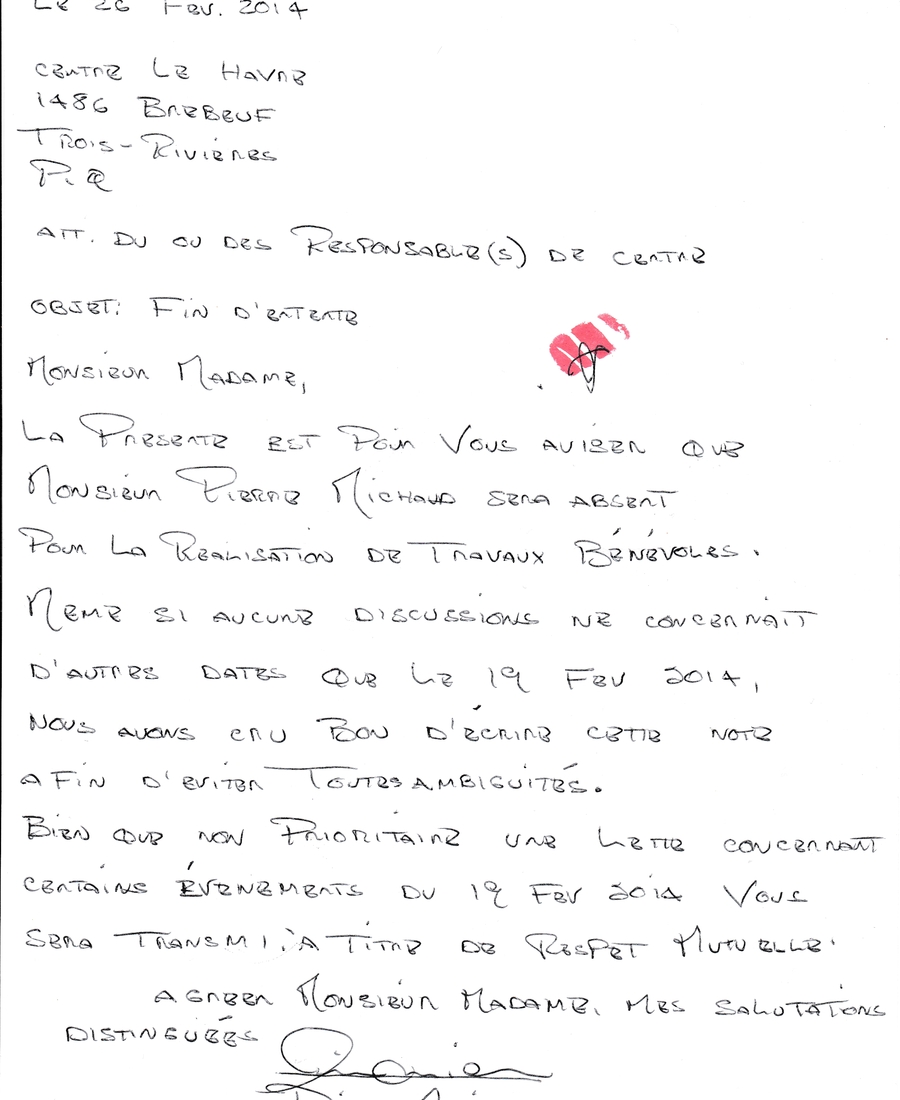 LE 26 FEV. 2014
CENTRE LE HAVRE
1486 BREBEUF
TROIS-RIVIÈRES
P.Q
ATT. DU OU DES RESPONSABLE(S) DE CENTRE
OBJET: FIN D'ENTENTE
MONSIEUR MADAME,
LA PRESENTE EST POUR VOUS AVISER QUE
MONSIEUR PIERRE MICHAUD SERA ABSENT
POUR LA REALISATION DE TRAVAUX BÉNÉVOLES.
MEME SI AUCUNE DISCUSSIONS NE CONCERNAIT
D'AUTRES DATES QUE LE 19 FEV 2014,
NOUS AVONS CRU BON D'ÉCRIRE CETTE NOTE
AFIN D'EVITER TOUTES AMBIGUITÉS.
BIEN QUE NON PRIORITAIRE UNE LETTE CONCERNANT
CERTAINS ÉVENEMENTS DU 19 FEV 2014 VOUS
SERA TRANSMI, À TITRE DE RESPET MUTUELLE.
AGREER MONSIEUR MADAME, MES SALUTATIONS
DISTINGUÉES